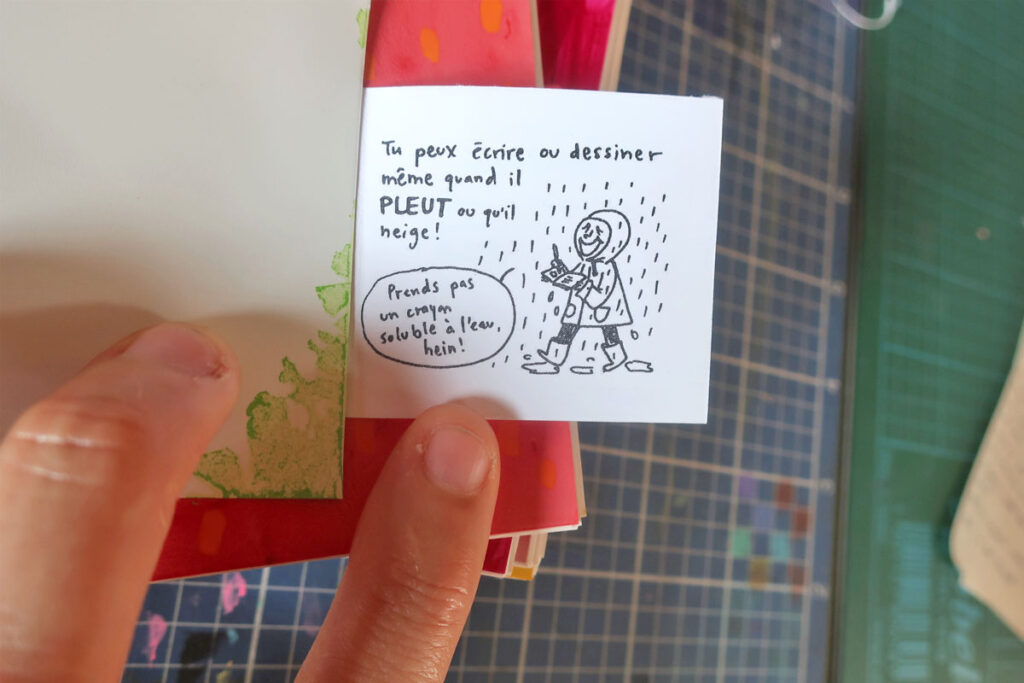 Tu peux écrire ou dessiner
même quand il
PLEUT ou qu'il
neige!
Prends pas
un crayon
soluble à l'eau,
hein!